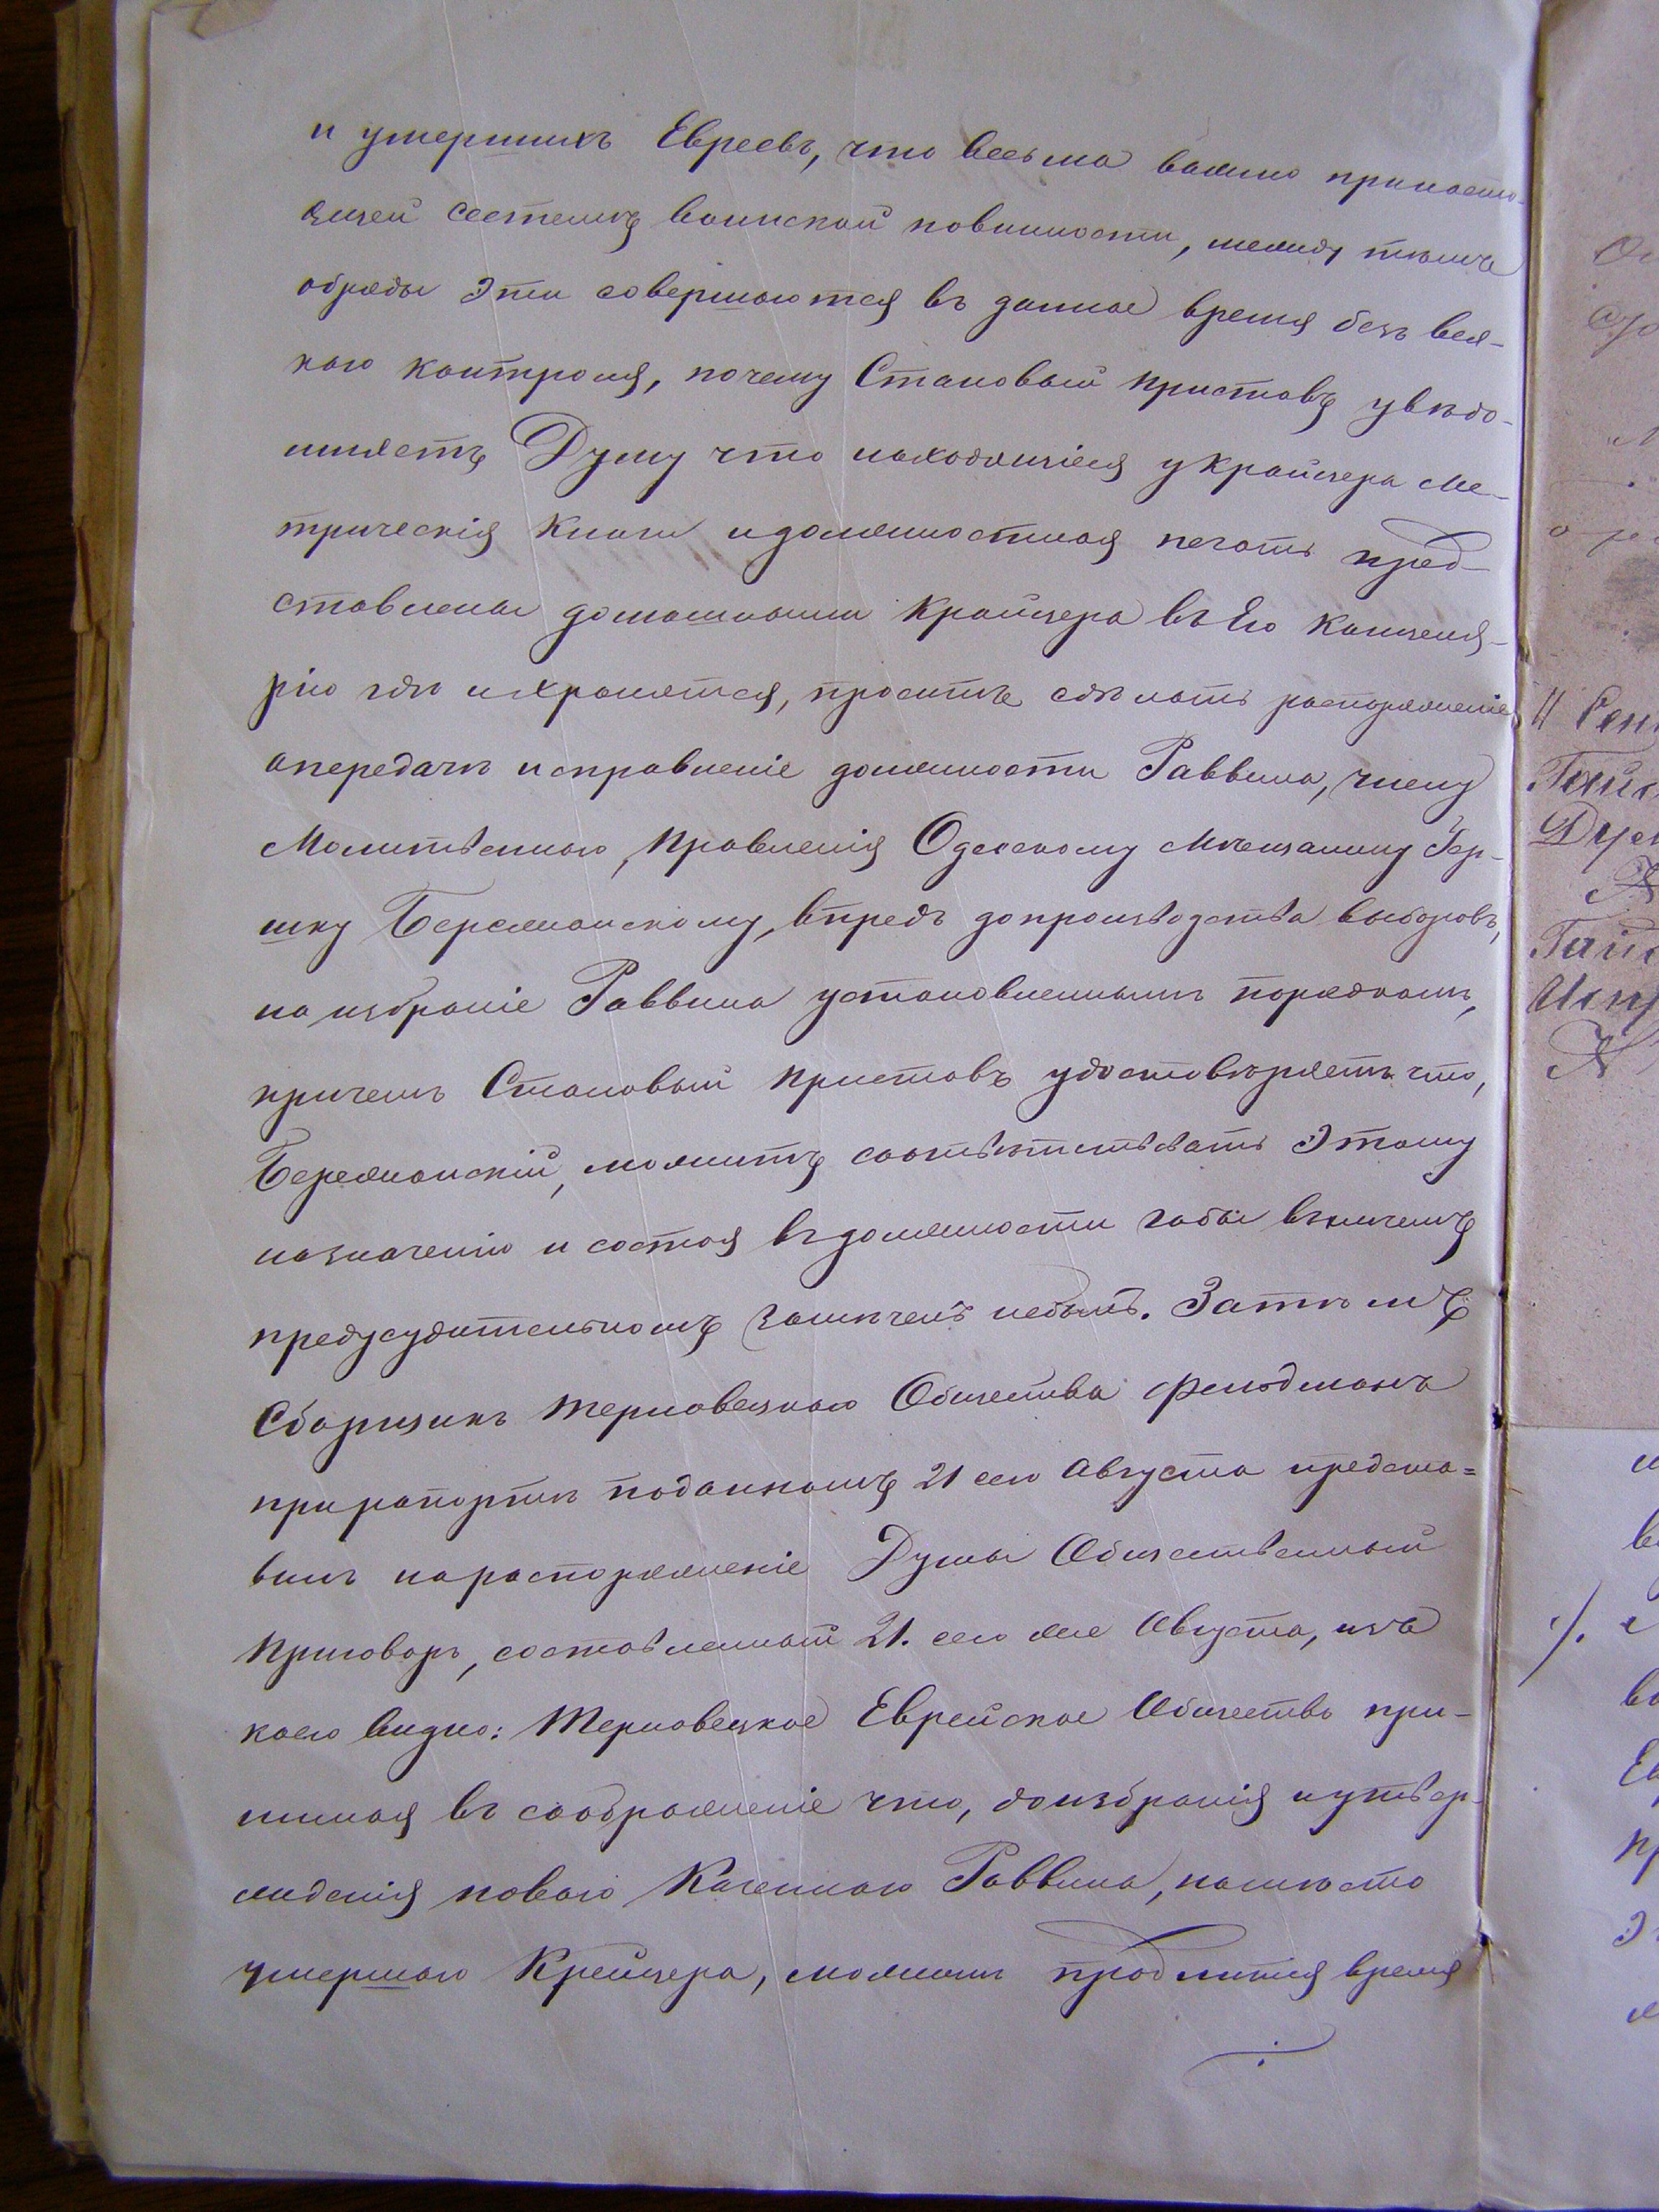 и умершихъ Евреевъ, что весьма важно принасто-
ящей системѣ воинской повинности, между тѣмъ
обряды эти совершаются въ данное время безъ вся-
каго контроля, почему Становый Приставъ увѣдо-
мляетъ Думу что находящіеся у Крайцера Ме-
трическія книги и должностная печать пред-
ставлены домашними Крайцера въ Его Канцеля-
рію гдѣ и хранятся, проситъ сдѣлать распоряженіе
о передачѣ исправленіе должности Раввина, члену
Молитвеннаго Правленія Одесскому Мѣщанину Гер-
шку Бережанскому, впредь до производства выборовъ,
на избраніе Раввина установленнымъ порядкомъ,
причемъ Становый Приставъ удостовѣряетъ что,
Бережанскій, можитъ соотвѣтствовать этому
назначенію и состоя въ должности габы въ ничемъ
предусудительномъ замѣченъ небылъ. Затѣмъ
Сборщикъ Терновецкаго Общества Фельдманъ
при рапортѣ поданномъ 21 сего Августа предста=
вилъ на распоряженіе Думы Общественный
Приговоръ, составленный 21. сего же Августа, изъ
коего видно: Терновецкое Еврейское Общество при-
нимая въ соображеніе что, до избранія и утвер-
жденія новаго Казеннаго Раввина, намѣсто
умершаго Крейцера, можетъ продлится время